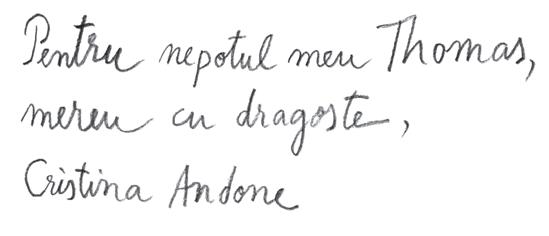 Pentru nepotul meu Thomas,
mereu cu dragoste,
Cristina Andone